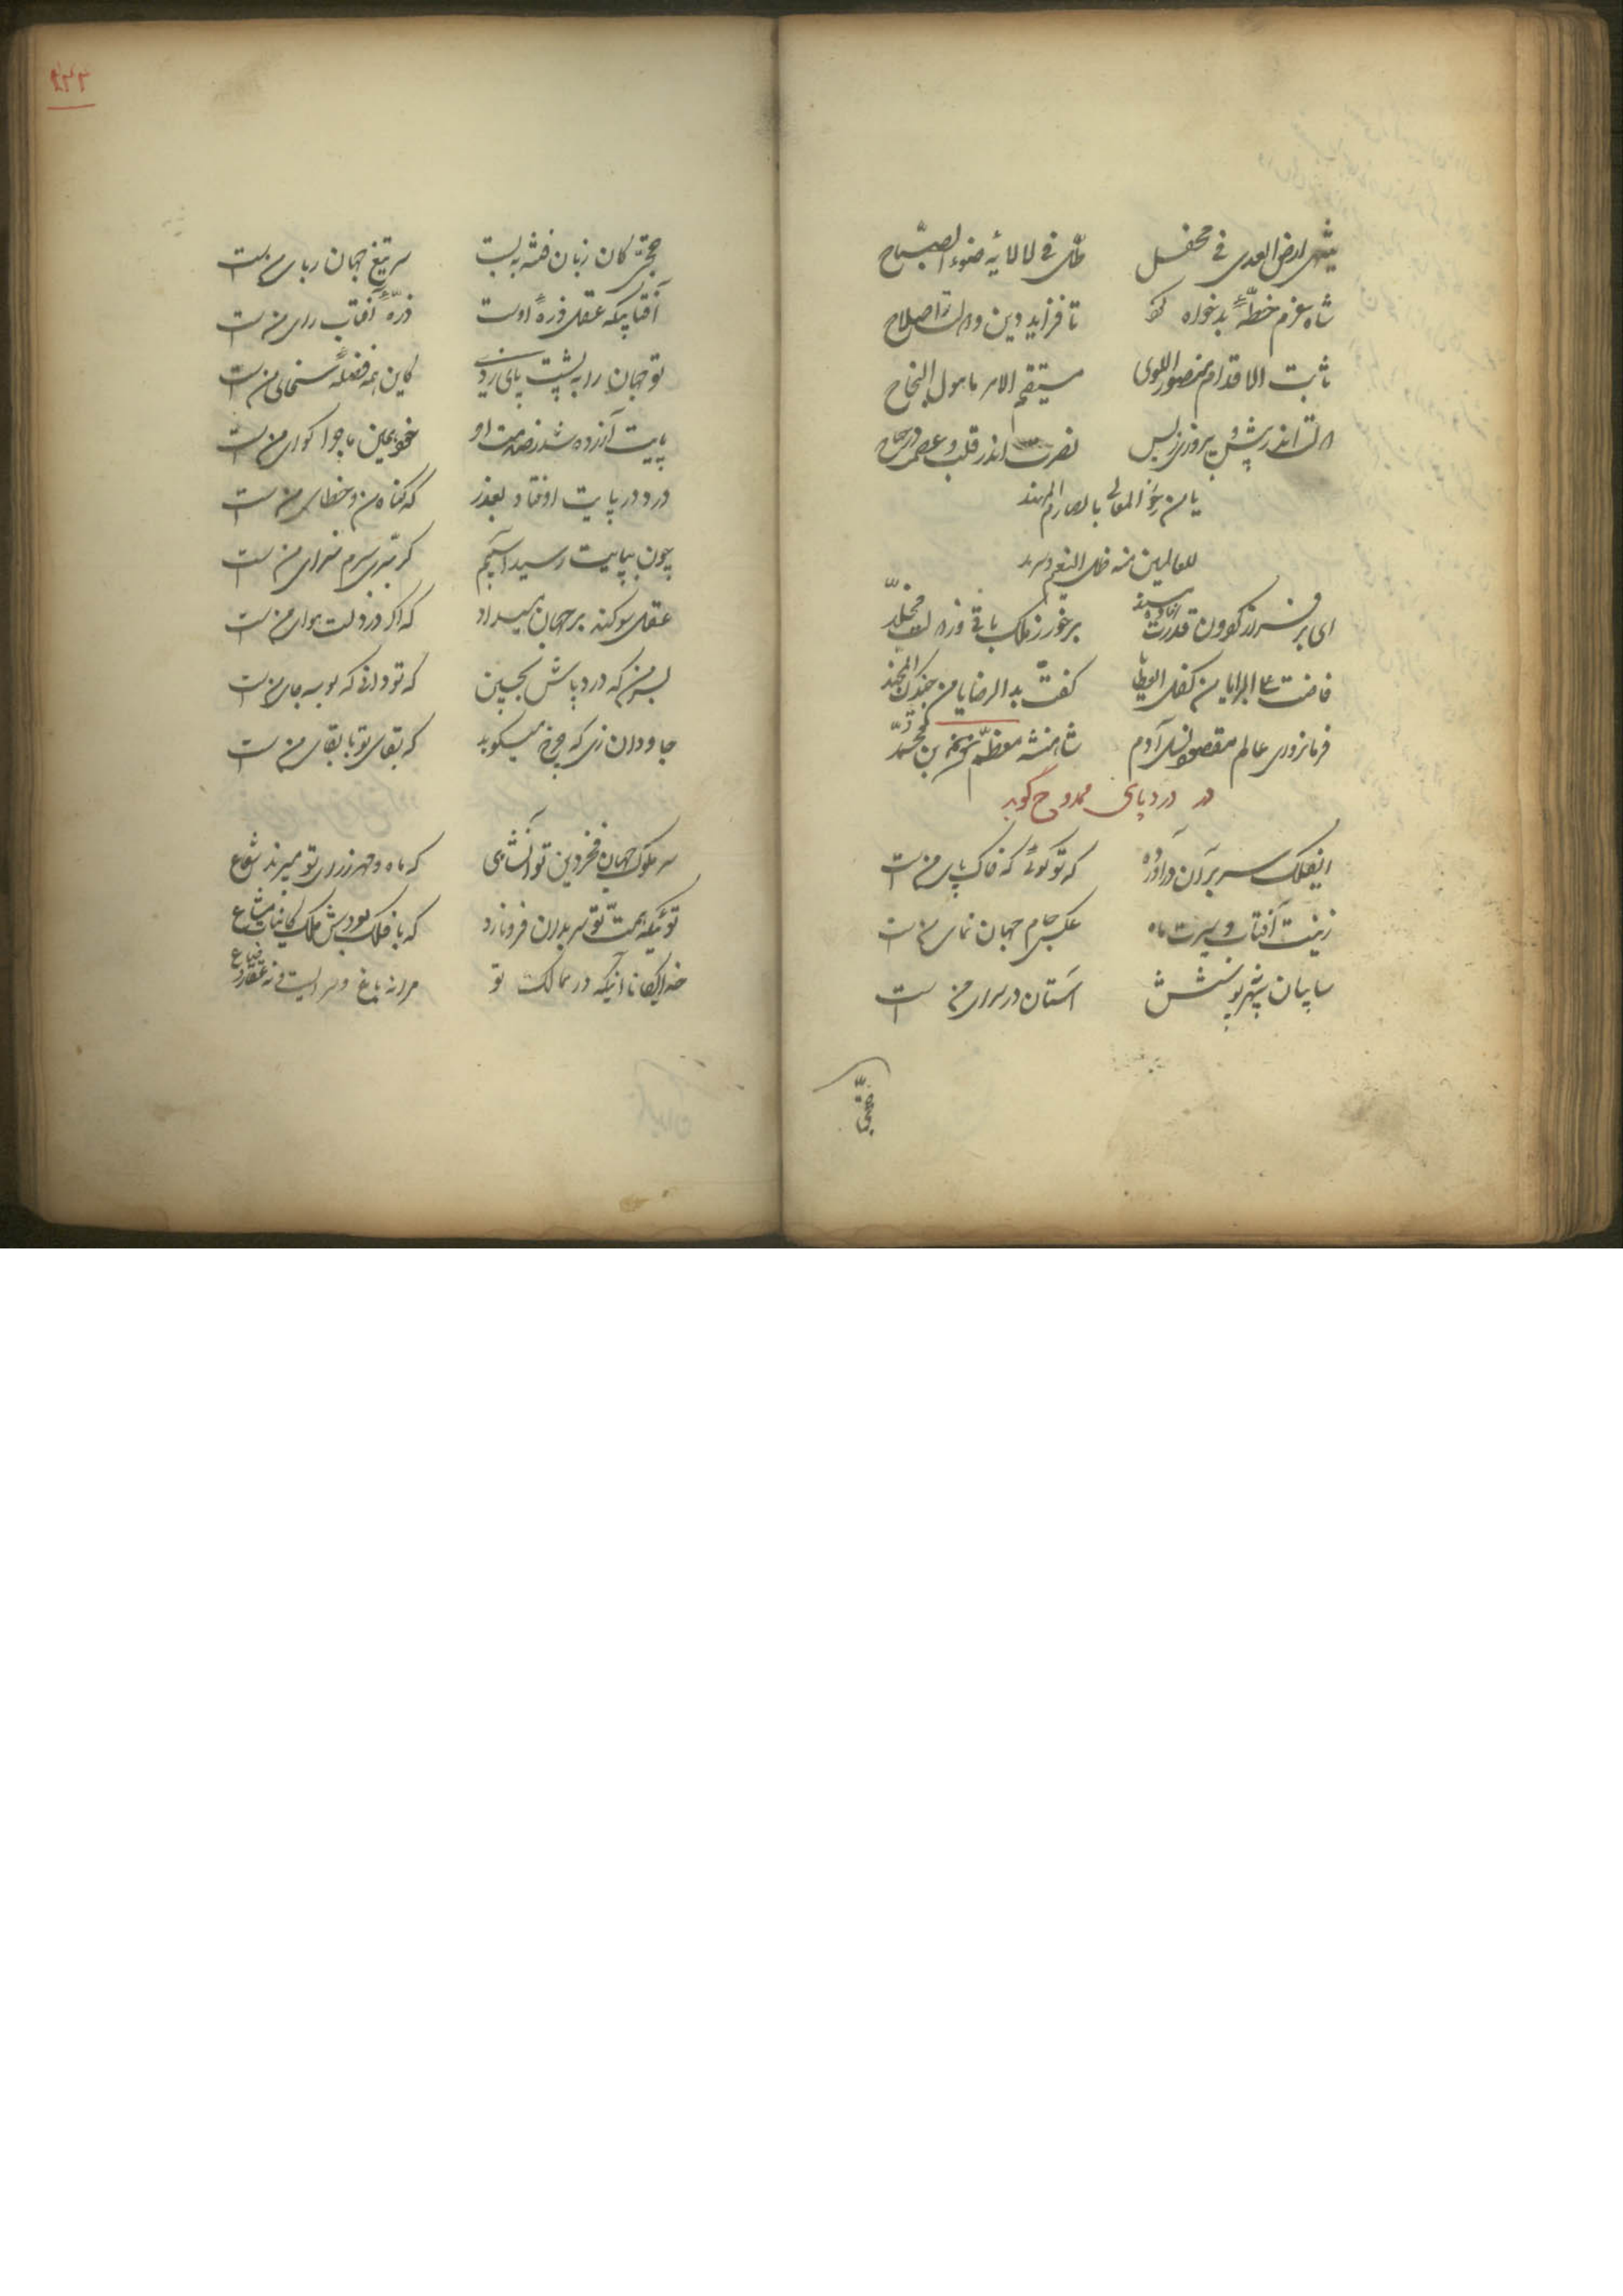 ارض العدی فی محفل ظل فی لالائه ضوء الصباح
شاه عزم خطهٔ بدخواه کو تا فزاید دین و دولت را صلاح
ثابت الاقدام منصور اللوی مستقیم الامر مامول النجاح
دولت اندر پیش و پیروزی ز پس نصرت اندر قلب و عصمت در جناح
یا من المعالی بالصارم المهند
للعالمین منه ظل النعیم
ای بر سریر گردون قدرت برخور ز ملک باقی در دولت مخلد
فاضت علی البرایا من کفک العطایا کفت ید الرضایا من جندک المجند
فرمانروای عالم مقصود نسل آدم شاهنشه معظم بن محمد
در درد پای ممدوح گوید
ایفلک سر بر آن در آورده که تو گوئی که خاک پای من است
زینت آفتاب و سیرت ماه عکس جام جهان نمای من است
سایبان سپهر پوشش آستان در سرای من است
حجتی
۲۳۲
حجتی کان زبان فتنه ببست سر تیغ جهان ربای من است
آفتابیکه عقل ذرهٔ اوست ذرهٔ آفتاب رای من است
تو جهان را به پشت پای زدی کاین همه فضلهٔ سخای من است
پایت آزرده شد ز صدمت او
درد در پایت اوفتاد بعذر که گناه من و خطای من است
چون بپایت رسید آسیبم گر بری سرم سزای من است
عقل سوگند بر جهان میداد که اگر در دلت هوای من است
بس من که درد پاش بچین که تو دانی که بوسه جای من است
جاودان زی که چرخ میگوید که بقای تو با بقای من است
سر ملوک جهان فخر دین تو آنشاهی که ماه و مهر ز رای تو میبرند شعاع
توئیکه همت تو سر بدان فرو نارد که با فلک بودش ملک کاینات مشاع
خدایگانا آنیکه در ممالک تو مرا نه باغ و سرائیست و نه عقار و ضیاع